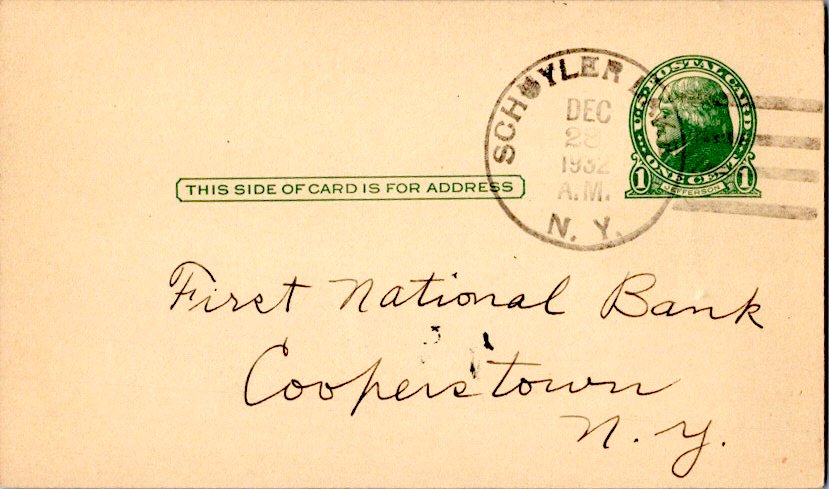 SCHUYLER
DEC
28
1932
A.M.
N. Y.
U.S. POSTAL CARD
ONE CENT
1 1
JEFFERSON
THIS SIDE OF CARD IS FOR ADDRESS
First National Bank
Cooperstown
N. Y.